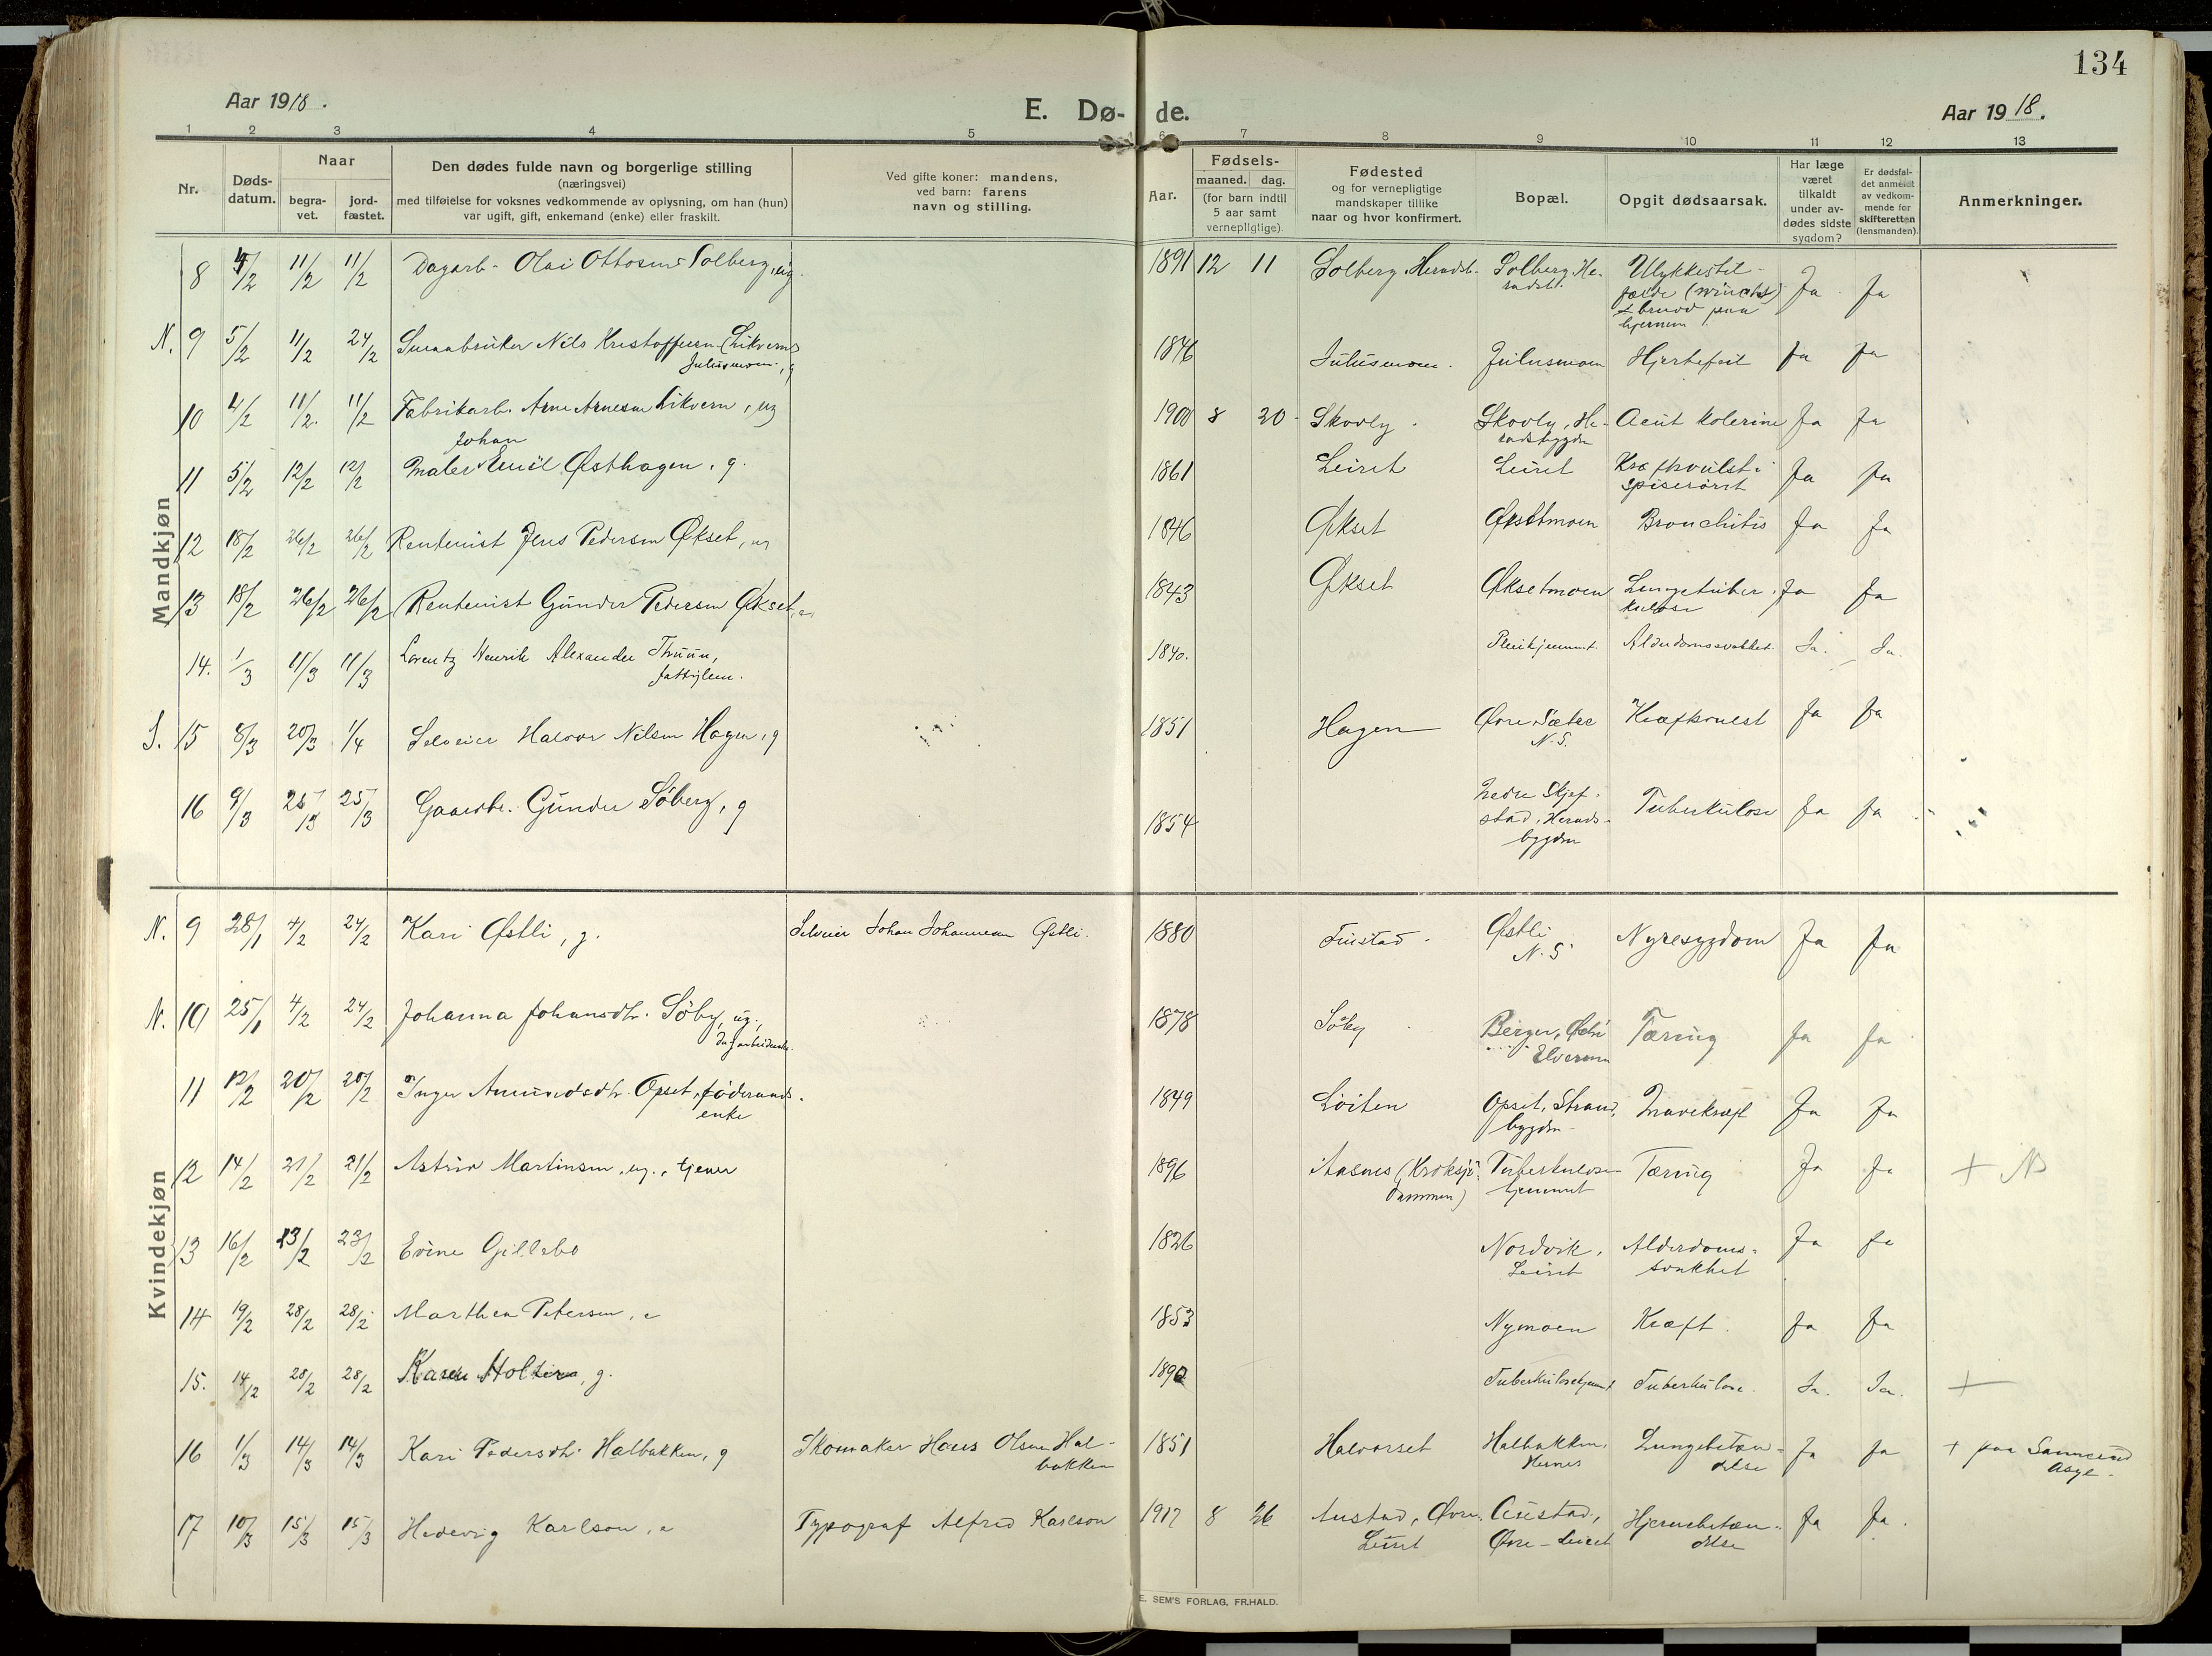 134
Aar 1918.
E. Dø- de.
Aar 1918.
1 2 3 4 5 6 7 8 9 10 11 12 13
Nr.
Døds-
datum.
Naar
begra-
vet.
jord-
fæstet.
Den dødes fulde navn og borgerlige stilling
(næringsvei)
med tilføielse for voksnes vedkommende av oplysning, om han (hun)
var ugift, gift, enkemand (enke) eller fraskilt.
Ved gifte koner: mandens,
ved barn: farens
navn og stilling.
Aar.
Fødsels-
maaned. dag.
(for barn indtil
5 aar samt
vernepligtige)
Fødested
og for vernepligtige
mandskaper tillike
naar og hvor konfirmert.
Bopæl.
Opgit dødsaarsak.
Har læge
været
tilkaldt
under av-
dødes sidste
sygdom?
Er dødsfal-
det anmeldt
av vedkom-
mende for
skifteretten
(lensmanden).
Anmerkninger.
Mandkjøn
8 4/2 11/2 11/2 Dagarb. Olai Ottosen Solberg, ug. 1891 12 11 Solberg, Heradsb. Solberg, He- Ulykkestil-
radsb. fælde
hjernen Ja Ja
N. 9 5/2 11/2 24/2 Smaabruker Nils Kristoffersen (Likvern) 1846 Julusmoen. Julusmoen Hjertefeil Ja Ja
Julusmoen, g
10 4/2 11/2 11/2 Fabrikarb. Arne Arnesen Likvern, ug 1900 8 20 Skovly. Skovly, He- Acut kolerine Ja Ja
radsbygden
Johan
11 5/2 12/2 12/2 Maler Emil Østhagen, g. 1861 Leiret Leiret Kræftsvulst i Ja Ja
spiserøret
12 18/2 26/2 26/2 Rentenist Jens Pedersen Økset, ug 1846 Økset Øksetmoen Bronchitis Ja Ja
13 18/2 26/2 26/2 Rentenist Gunder Pedersen Økset, 1843 Økset Øksetmoen Lungetuber- Ja Ja
kulose
14. 1/3 11/3 11/3 Lorentz Henrik Alexander Thuun, 1840. Pleiehjemmet. Alderdomssvakhet. Ja. Ja.
fattiglem.
S. 15 8/3 20/3 1/4 Selveier Halvor Nilsen Hagen, g 1851 Hagen Øvre Sæter Kræftsvulst Ja Ja
N. S.
16 9/3 25/3 25/3 Gaardbr. Gunder Søberg, g 1854 Nedre Skjef- Tuberkulose Ja Ja
stad, Herads-
bygden
Kvindekjøn
N. 9 28/1 4/2 24/2 Kari Østli, g. Selveier Johan Johannesen Østli. 1880 Finstad. Østli Nyresygdom Ja Ja
N. S
N. 10 25/1 4/2 24/2 Johanna Johansdtr. Søby, ug., 1878 Søby Berger, Østre Tæring Ja Ja
dagarbeiderske. Elverum
11 12/2 20/2 20/2 Inger Amundsdtr. Opset, føderaads- 1849 Løiten Opset, Strand- Mavekræft Ja Ja
enke bygden
12 14/2 21/2 21/2 Astrid Martinsen, ug., tjener 1896 Aasnes (Kroksjø- Tuberkulose- Tæring Ja Ja + NB
dammen) hjemmet
13 16/2 23/2 23/2 Evine Gillebo 1826 Nordvik, Alderdoms- Ja Ja
Leiret svakhet
14 19/2 28/2 28/2 Marthea Petersen, e 1853 Nymoen Kræft. Ja Ja
15. 14/2 28/2 28/2 Karen Holter, g. 1890 Tuberkulosehjemmet Tuberkulose. Ja. Ja. +
16 1/3 14/3 14/3 Kari Pedersdtr. Halbakken, g Skomaker Hans Olsen Hal- 1851 Halvorset Halbakken, Lungebetæn- Ja Ja + paa Sanncund
bakken Hernes delse Asyl.
17 10/3 15/3 15/3 Hedevig Karlson, Typograf Alfred Karlson 1917 8 26 Austad, Øvre Austad, Hjernebetæn- Ja Ja.
Leiret Øvre-Leiret delse
E. SEM'S FORLAG, FR.HALD.